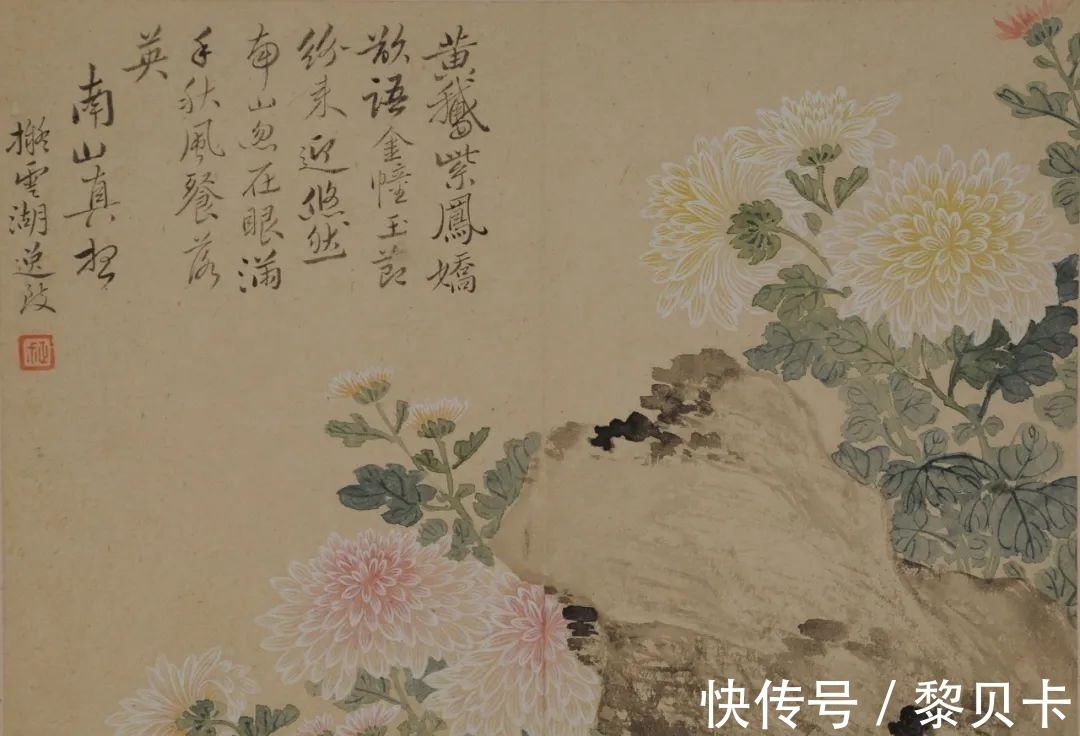 黄鵞紫鳳嬌
欲語金幢玉莭
紛来迎悠然
南山忽在眼满
手秋風餐落
英
南山真
擬雲湖逸
快传号 / 黎贝卡